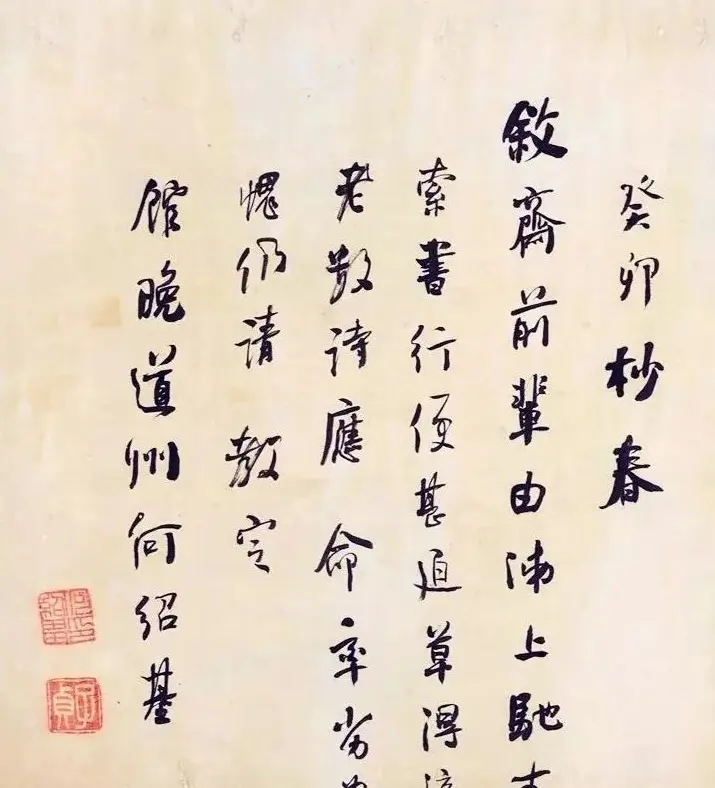 癸卯杪春
敘齋前輩由沛上馳
索書行便甚迫草得
老散詩應 命率劣
愧仍請 教定
館晚道州何紹基
子貞